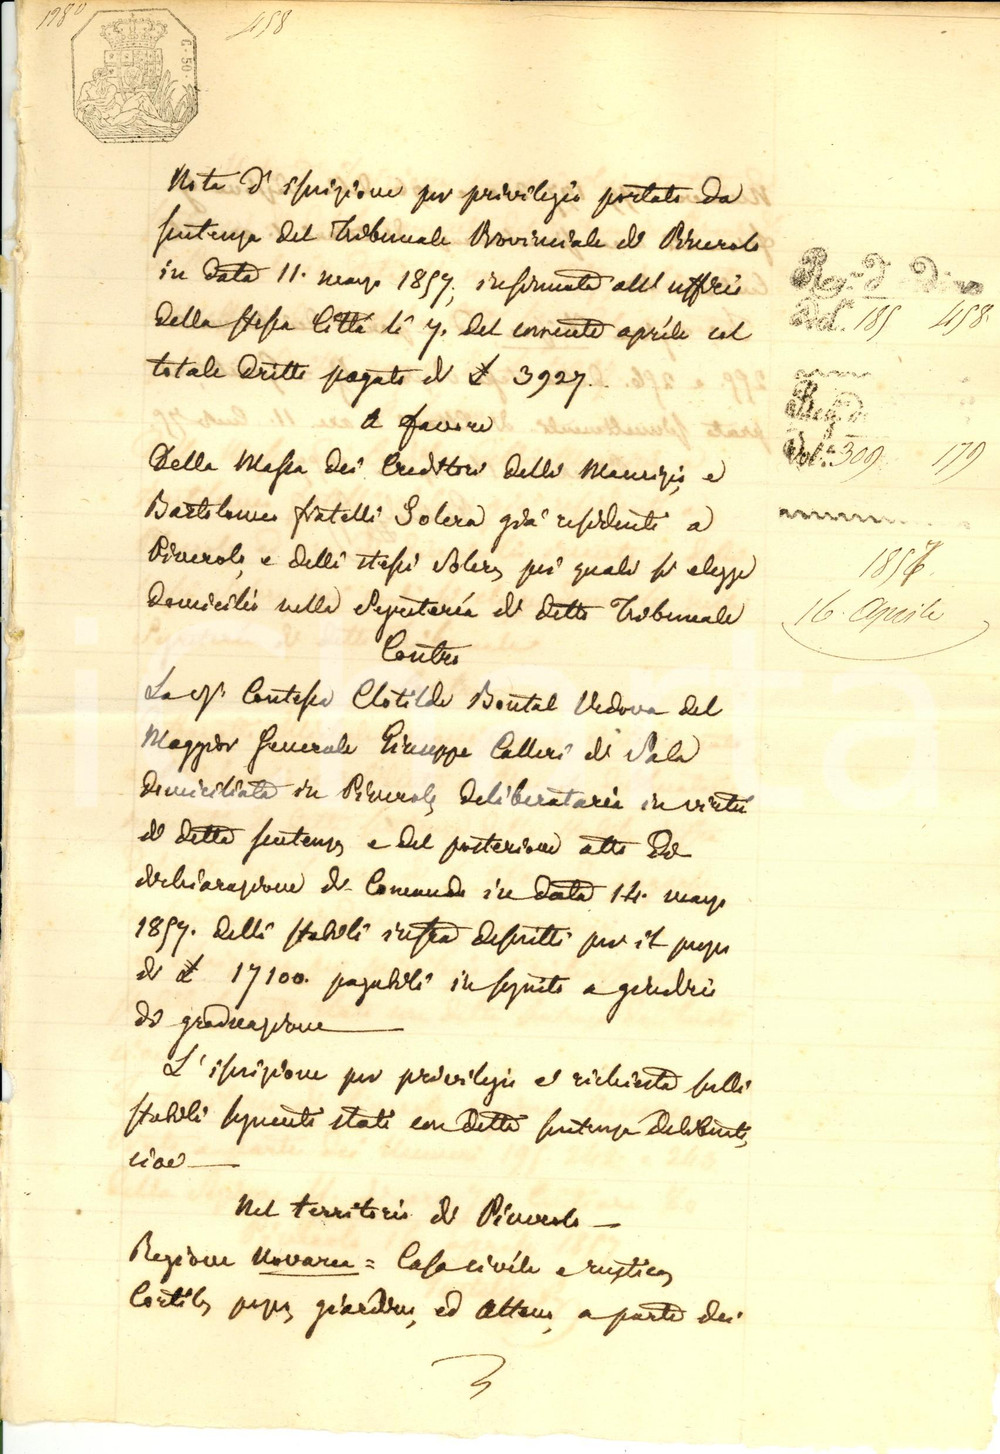 1980
458
C. 50.
Nota d'iscrizione per privilegio portato da
sentenza del Tribunale Provinciale di Pinerolo
in data 11. marzo 1857, insinuata all'ufficio
della stessa Città li 7. del corrente aprile col
totale dritto pagato di £ 3927.
A favore
Della Massa dei Creditori delli Maurizio, e
Bartolomeo fratelli Solera già residenti a
Pinerolo, e delli stessi Solera, pei quali si elegge
domicilio nella Segreteria di detto Tribunale
Contro
La Contessa Clotilde Bontal Vedova del
Maggior Generale Giuseppe Calleri di Sala
domiciliata in Pinerolo, deliberataria in virtù
di detta sentenza, e del posteriore atto di
dichiarazione di Comando in data 14. marzo
1857. delli stabili infra descritti per il prezzo
di £ 17100. pagabili in seguito a giudicio
di graduazione
L'iscrizione per privilegio è richiesta sulli
stabili seguenti stati con detta sentenza deliberati,
cioè
Nel territorio di Pinerolo
Regione Novarea = Casa civile e rustica,
Cortile, pozzo, giardino, ed Alteno, a parte dei
Reg. d'Ordine
Vol. 185 458
Reg. di
Vol. 309 179
1857.
16. Aprile